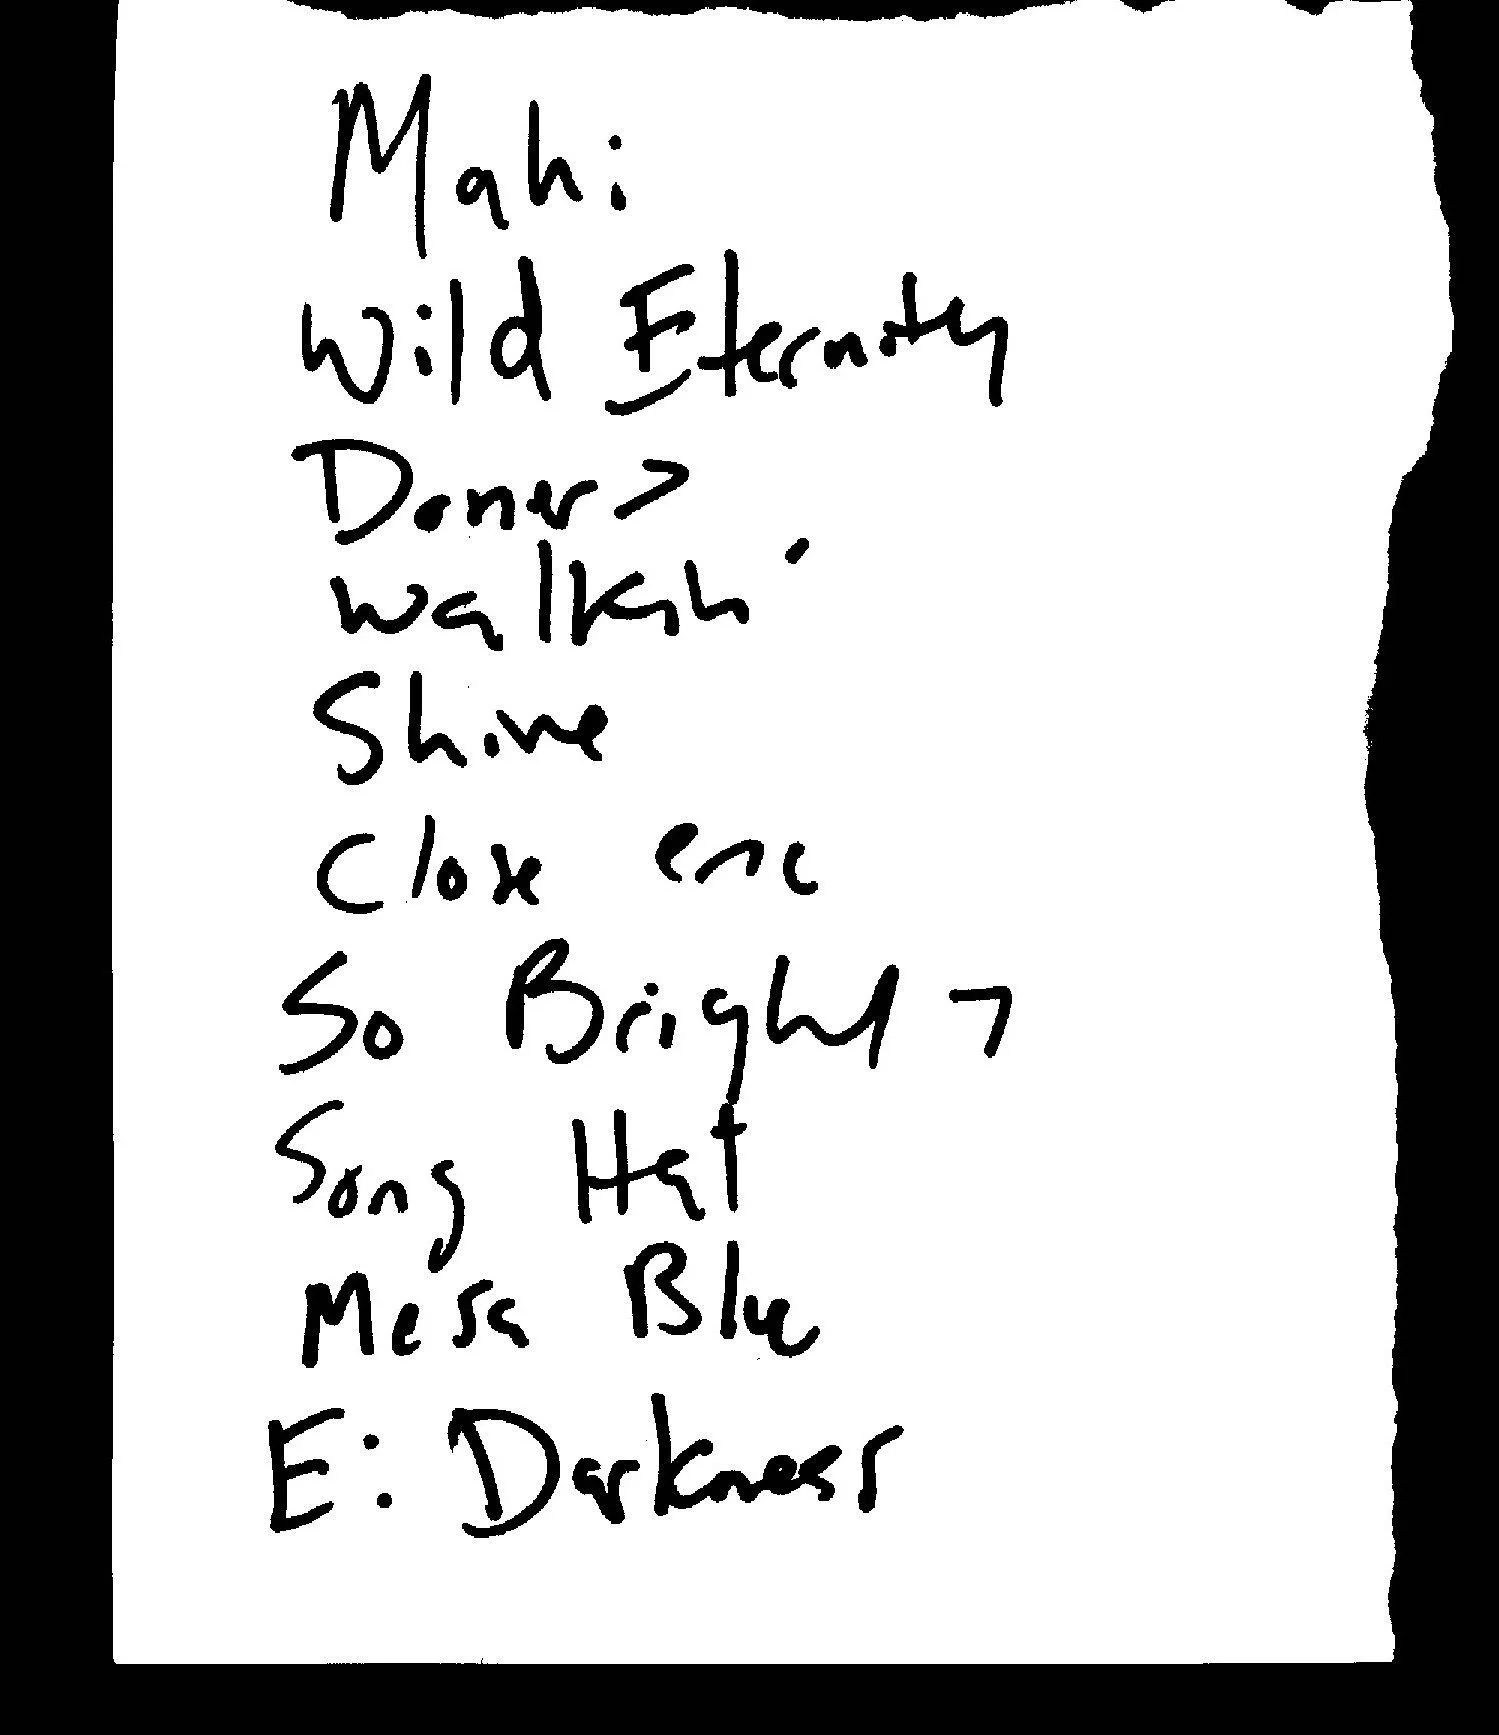 Mahi
Wild Eternity
Doner >
Walkin'
Shine
Close enc
So Bright >
Song Hat
Mesa Blue
E: Darkness